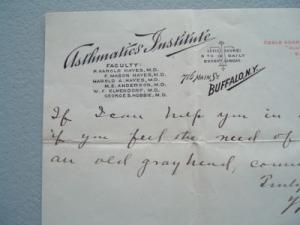 Asthmatics' Institute
FACULTY:
P. HAROLD HAYES, M.D.
F. MASON HAYES, M.D.
HAROLD A. HAYES, M.D.
M.E. ANDERSON, M.D.
W.F. ELMENDORF, M.D.
GEORGE S. HOBBIE, M.D.
OFFICE HOURS:
DAILY
EXCEPT SUNDAY
716 MAIN ST.
BUFFALO, N.Y.
CABLE
If I can help you in
if you feel the need of
an old grayhead,
Truly